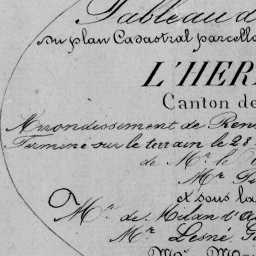 Tableau d
du plan Cadastral parcella
L'HER
Canton de
Arrondissement de Ren
Terminé sur le terrain le 28
de Mr. le
Mr.
et sous la
Mr. de Milan d'A
Mr. Lesné, G
Mr.